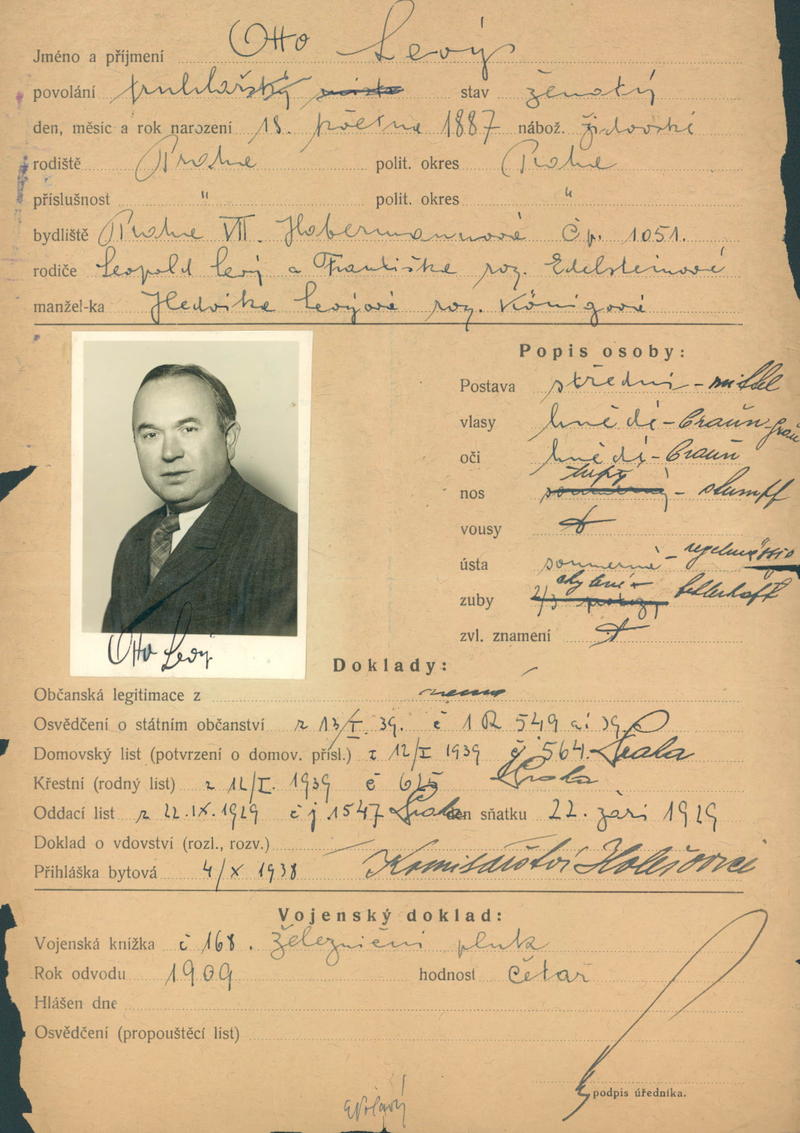 Jméno a příjmení Otto Levý
povolání truhlářský stav ženatý
den, měsíc a rok narození 18. května 1887 nábož. židovské
rodiště Praha polit. okres Praha
příslušnost " polit. okres "
bydliště Praha VII. Habermannova čp. 1051.
rodiče Leopold Levý a Františka roz. Edelsteinová
manžel-ka Hedvika Levýová roz. Königová
Popis osoby:
Postava střední - mittel
vlasy hnědé - braun grau
oči hnědé - braun
nos tupý - stumpf
vousy
ústa souměrné - regelmässig
zuby chybné - fehlerhaft
zvl. znamení
Otto Levý
Doklady:
Občanská legitimace z nemá
Osvědčení o státním občanství z 13/I. 39. č 1 R 549 ai 39
Domovský list (potvrzení o domov. přísl.) z 12/I 1939 čj 564. Praha
Křestní (rodný list) z 12/I. 1939 č 625 Praha
Oddací list z 22.IX.1929 čj 1547 Praha den sňatku 22. září 1929
Doklad o vdovství (rozl., rozv.)
Přihláška bytová 4/X 1938 Komisařství Holešovice
Vojenský doklad:
Vojenská knížka č 168. železniční pluk
Rok odvodu 1909 hodnost četař
Hlášen dne
Osvědčení (propouštěcí list)
podpis úředníka.